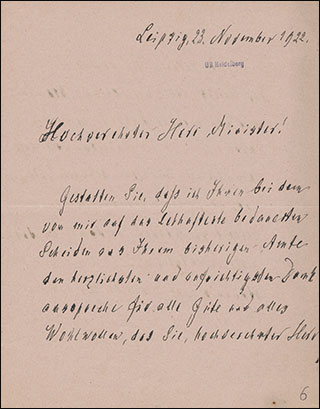 Leipzig, 23. November 1922.
UB Heidelberg
Hochverehrter Herr Minister!
Gestatten Sie, daß ich Ihnen bei dem
von mir auf das lebhafteste bedauerten
Scheiden aus Ihrem bisherigen Amte
den herzlichsten und aufrichtigsten Dank
ausspreche für alle Güte und alles
Wohlwollen, das Sie, hochverehrter Herr
6